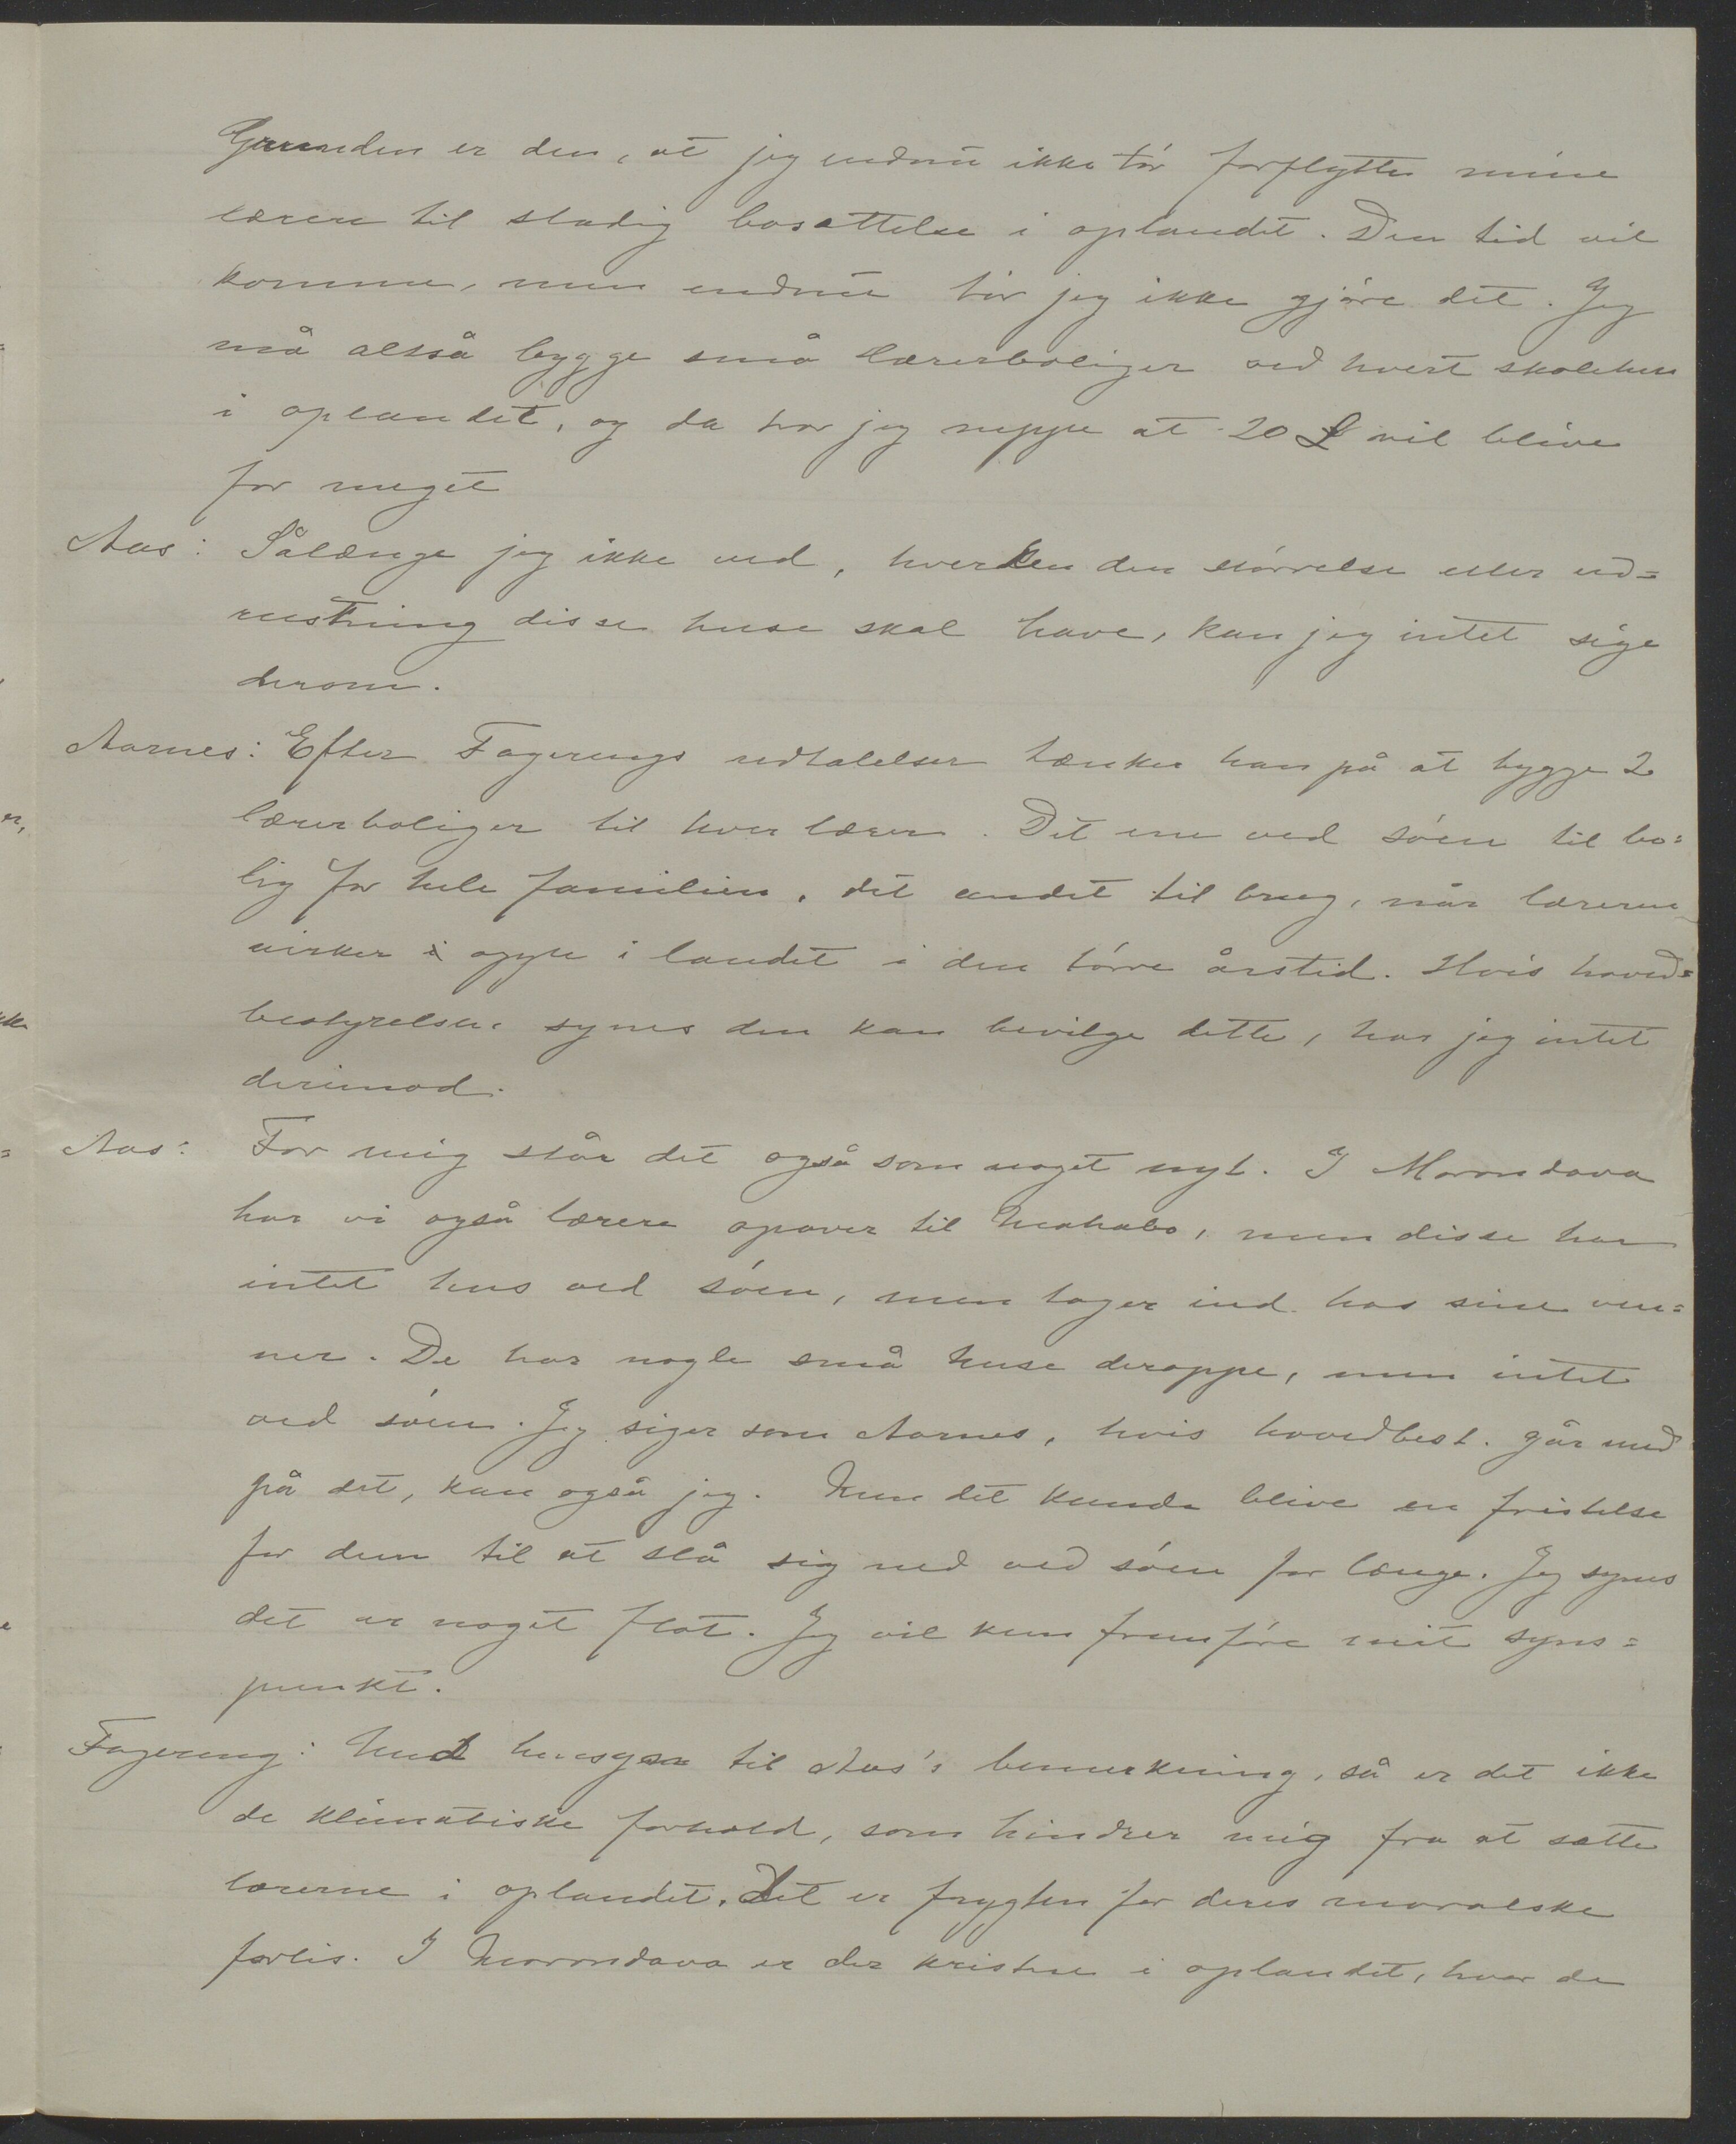 Grunden er den, at jeg endnu ikke tør forflytte mine
lærere til stadig bosættelse i oplandet. Den tid vil
komme, men endnu tør jeg ikke gjøre det. Jeg
må altså bygge små lærerboliger ved hvert skolehus
i oplandet, og da tror jeg neppe at 20 £ vil blive
for meget
Aas: Sålænge jeg ikke ved, hverken den størrelse eller ud=
rustning disse huse skal have, kan jeg intet sige
derom.
Aarnes: Efter Fagerengs udtalelser tænker han på at bygge 2
lærerboliger til hver lærer. Det ene ved søen til bo=
lig for hele familien, det andet til brug, når læreren
virker oppe i landet i den tørre årstid. Hvis hoved=
bestyrelsen synes den kan bevilge dette, har jeg intet
derimod.
Aas: For mig står det også som noget nyt. I Morondava
har vi også lærere opover til Mahabo, men disse har
intet hus ved søen, men tager ind hos sine ven=
ner. De har nogle små huse deroppe, men intet
ved søen. Jeg siger som Aarnes, hvis hovedbest. går med
på det, kan også jeg. Men det kunde blive en fristelse
for dem til at slå sig ned ved søen for længe. Jeg synes
det er noget flot. Jeg vil kun fremføre mit syns=
punkt.
Fagereng: Med hensyn til Aas's bemerkning, så er det ikke
de klimatiske forhold, som hindrer mig fra at sætte
lærerne i oplandet. Det er frygten for deres moralske
forlis. I Morondava er der kristne i oplandet, hvor de